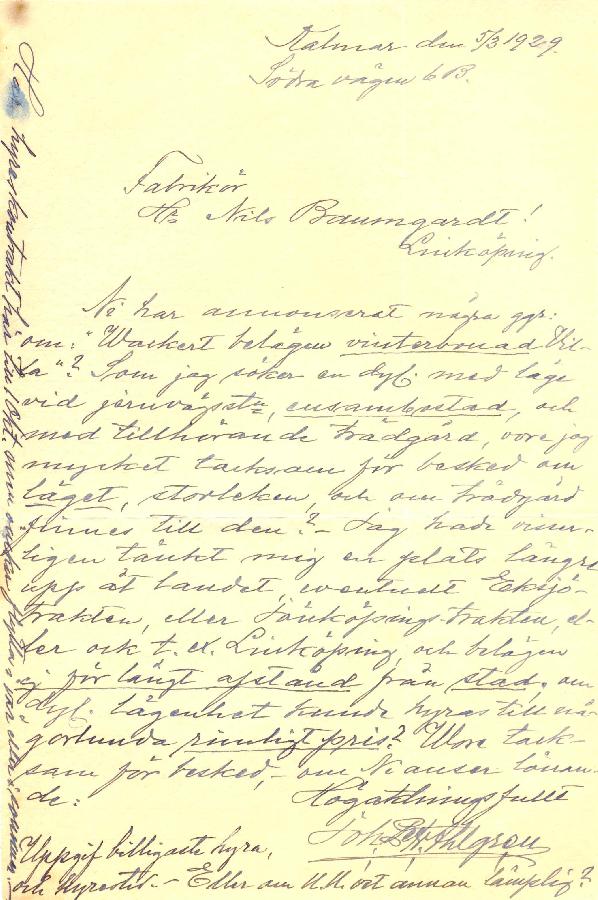 Kalmar den 5/3 1929.
Södra vägen 6 B.
Fabrikör
Hr Nils Baumgardt!
Linköping.
Ni har annonserat några ggr:
om: "Wackert belägen vinterbonad Vil-
la"? Som jag söker en dyl. med läge
vid jernvägsstn, ensambostad, och
med tillhörande trädgård, vore jag
mycket tacksam för besked om
läget, storleken, och om trädgård
finnes till den? - Jag hade visser-
ligen tänkt mig en plats längre
upp åt landet, eventuelt Eksjö-
trakten, eller Jönköpings-trakten, el-
ler ock t. ex. Linköping, och belägen
ej för långt afstånd från stad, om
dyl. lägenhet kunde hyras till nå-
gorlunda rimligt pris? Wore tack-
sam för besked, - om Ni anser lönan-
de:
Högaktningsfullt
Joh. Ahlgren
Uppgif billigaste hyra,
och hyrestid. - Eller om N.N. vet annan lämplig?
Har hyreskontrakt här till 1 Okt. men flytta i vår eller sommar.